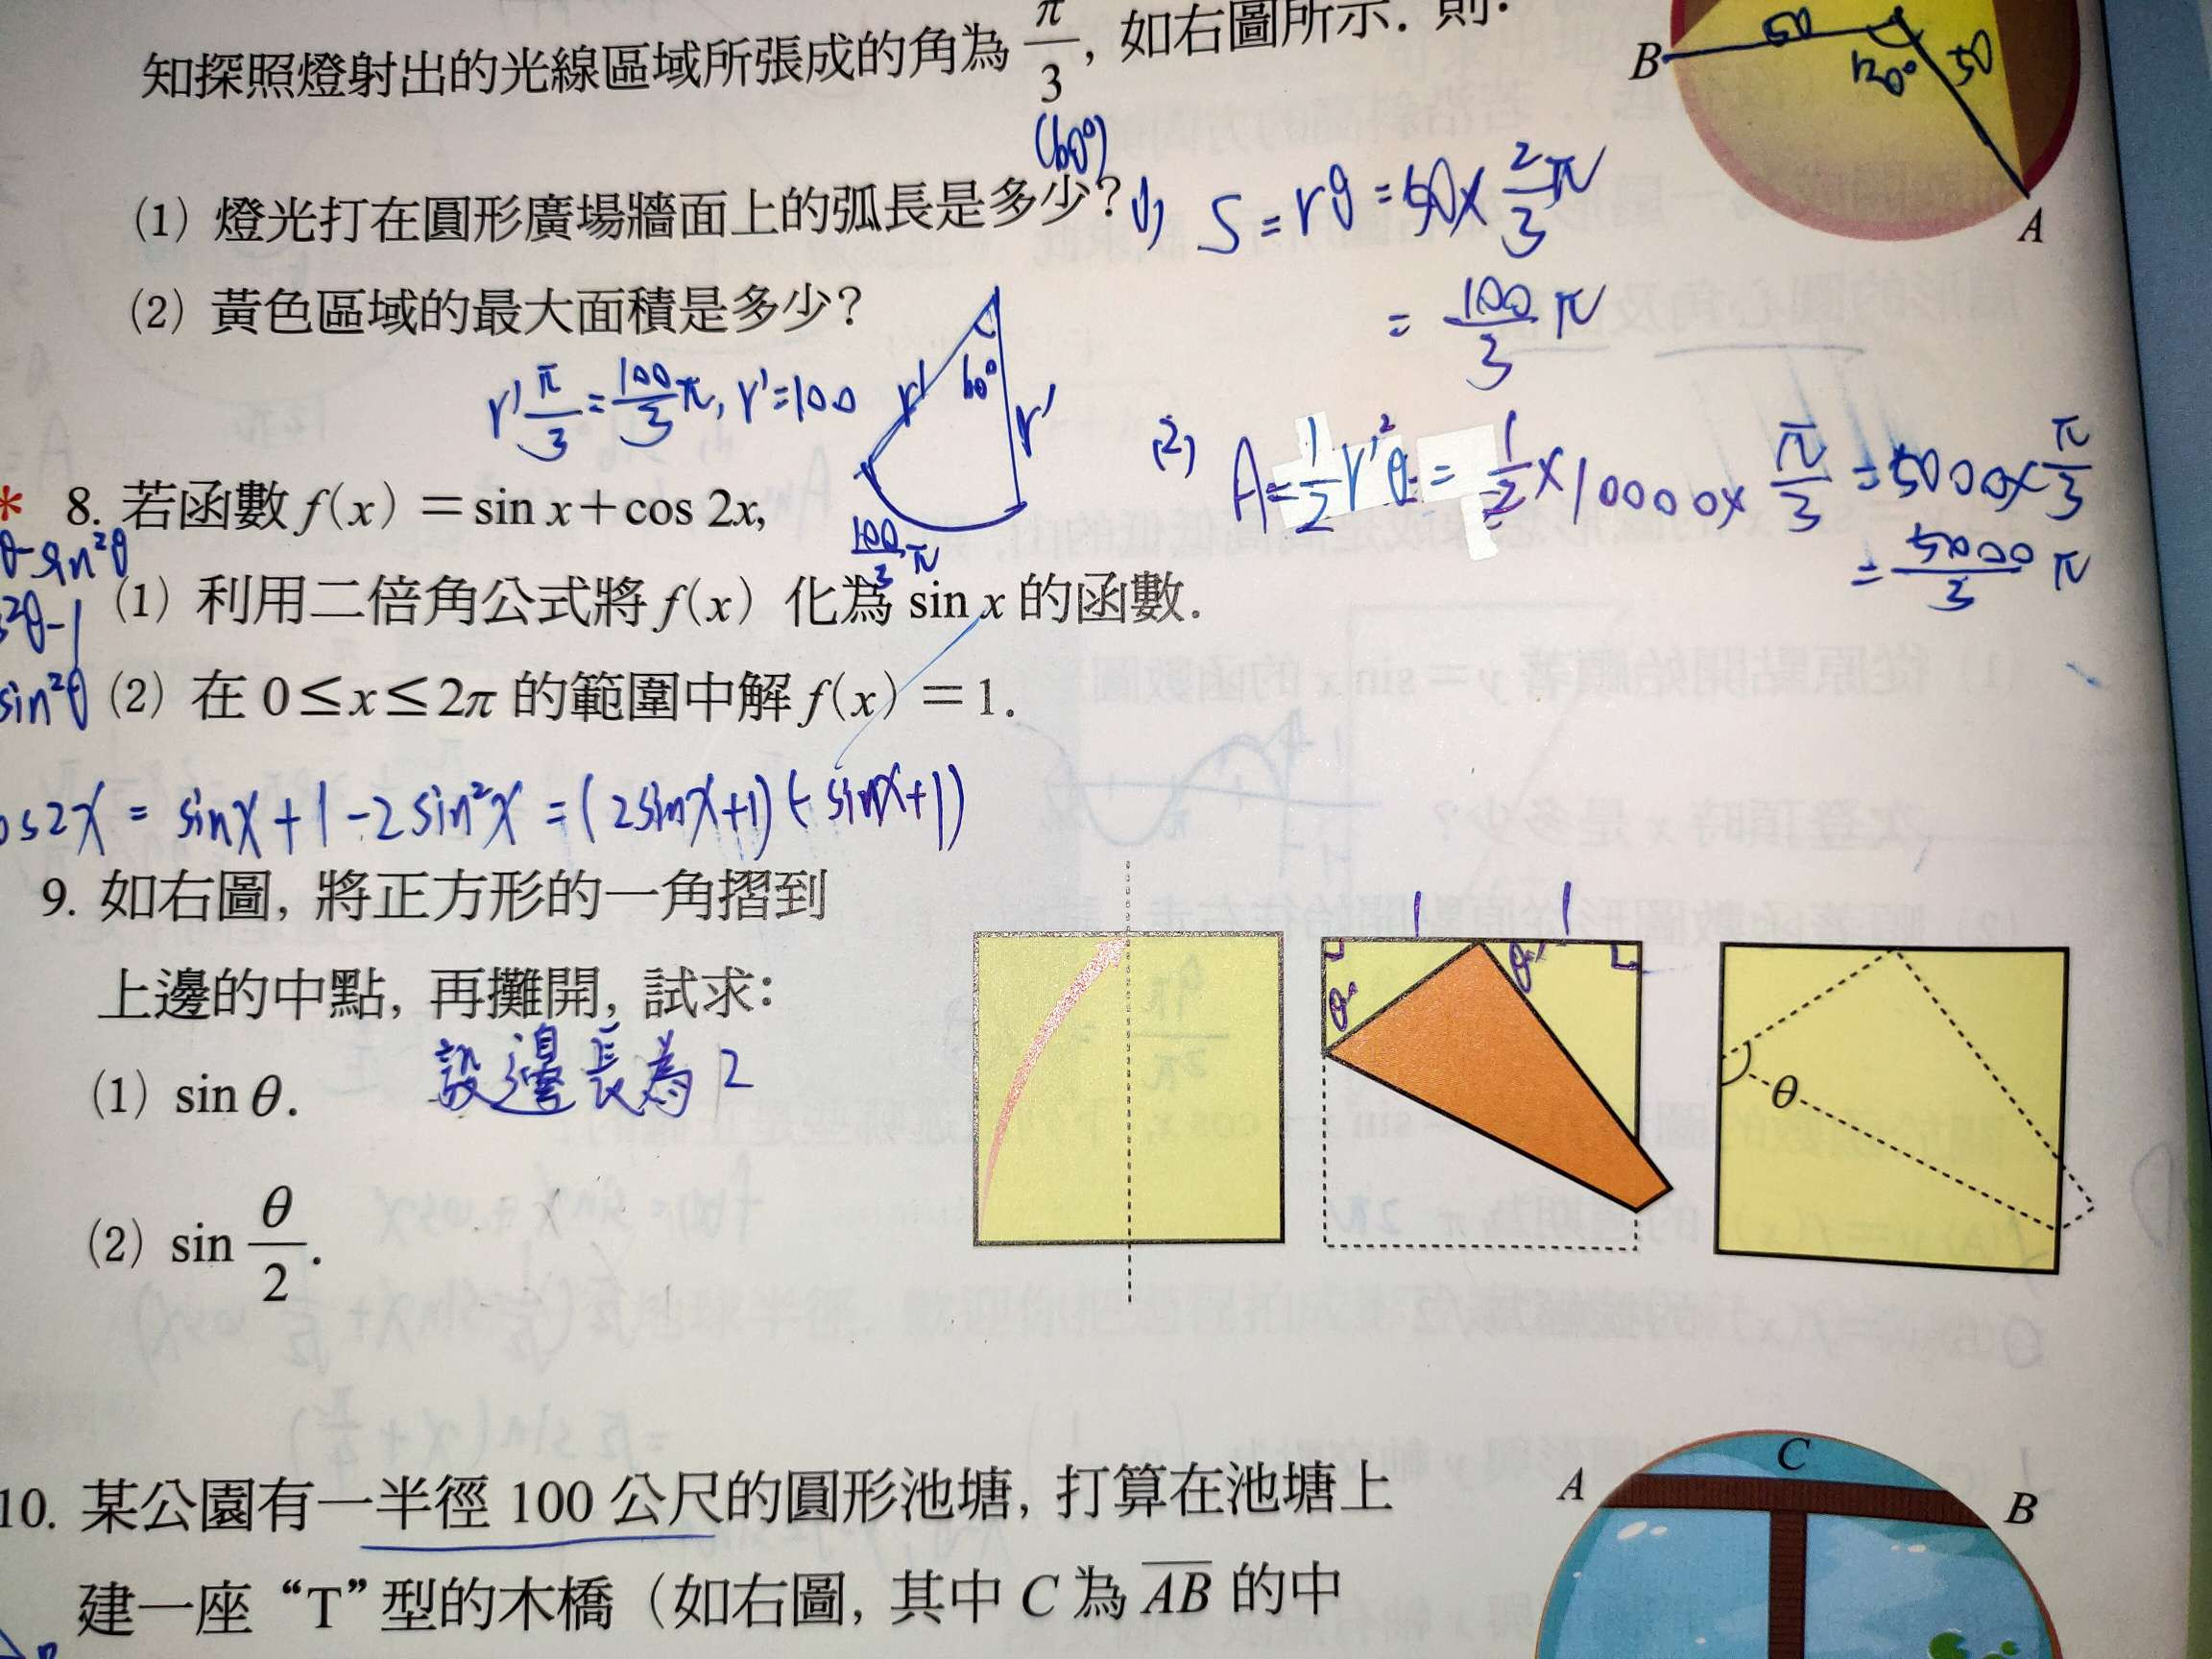 知探照燈射出的光線區域所張成的角為 π/3, 如右圖所示. 則:
(60°)
B 50 120° 50 A
(1) 燈光打在圓形廣場牆面上的弧長是多少?
(1) S = rθ = 50 × 2/3 π
= 100/3 π
(2) 黃色區域的最大面積是多少?
r' π/3 = 100/3 π, r' = 100
r' 60° r'
100/3 π
(2) A = 1/2 r'²θ = 1/2 × 10000 × π/3 = 5000 × π/3
= 5000/3 π
* 8. 若函數 f(x) = sin x + cos 2x,
θ - sin²θ
²θ - 1
sin²θ
(1) 利用二倍角公式將 f(x) 化為 sin x 的函數.
(2) 在 0 ≤ x ≤ 2π 的範圍中解 f(x) = 1.
os2x = sinx + 1 - 2sin²x = (2sinx+1)(-sinx+1)
9. 如右圖, 將正方形的一角摺到
上邊的中點, 再攤開, 試求:
(1) sin θ.
設邊長為 2
(2) sin θ/2.
1 1
θ' θ'
θ
10. 某公園有一半徑 100 公尺的圓形池塘, 打算在池塘上
建一座 “T” 型的木橋 (如右圖, 其中 C 為 AB 的中
A C B